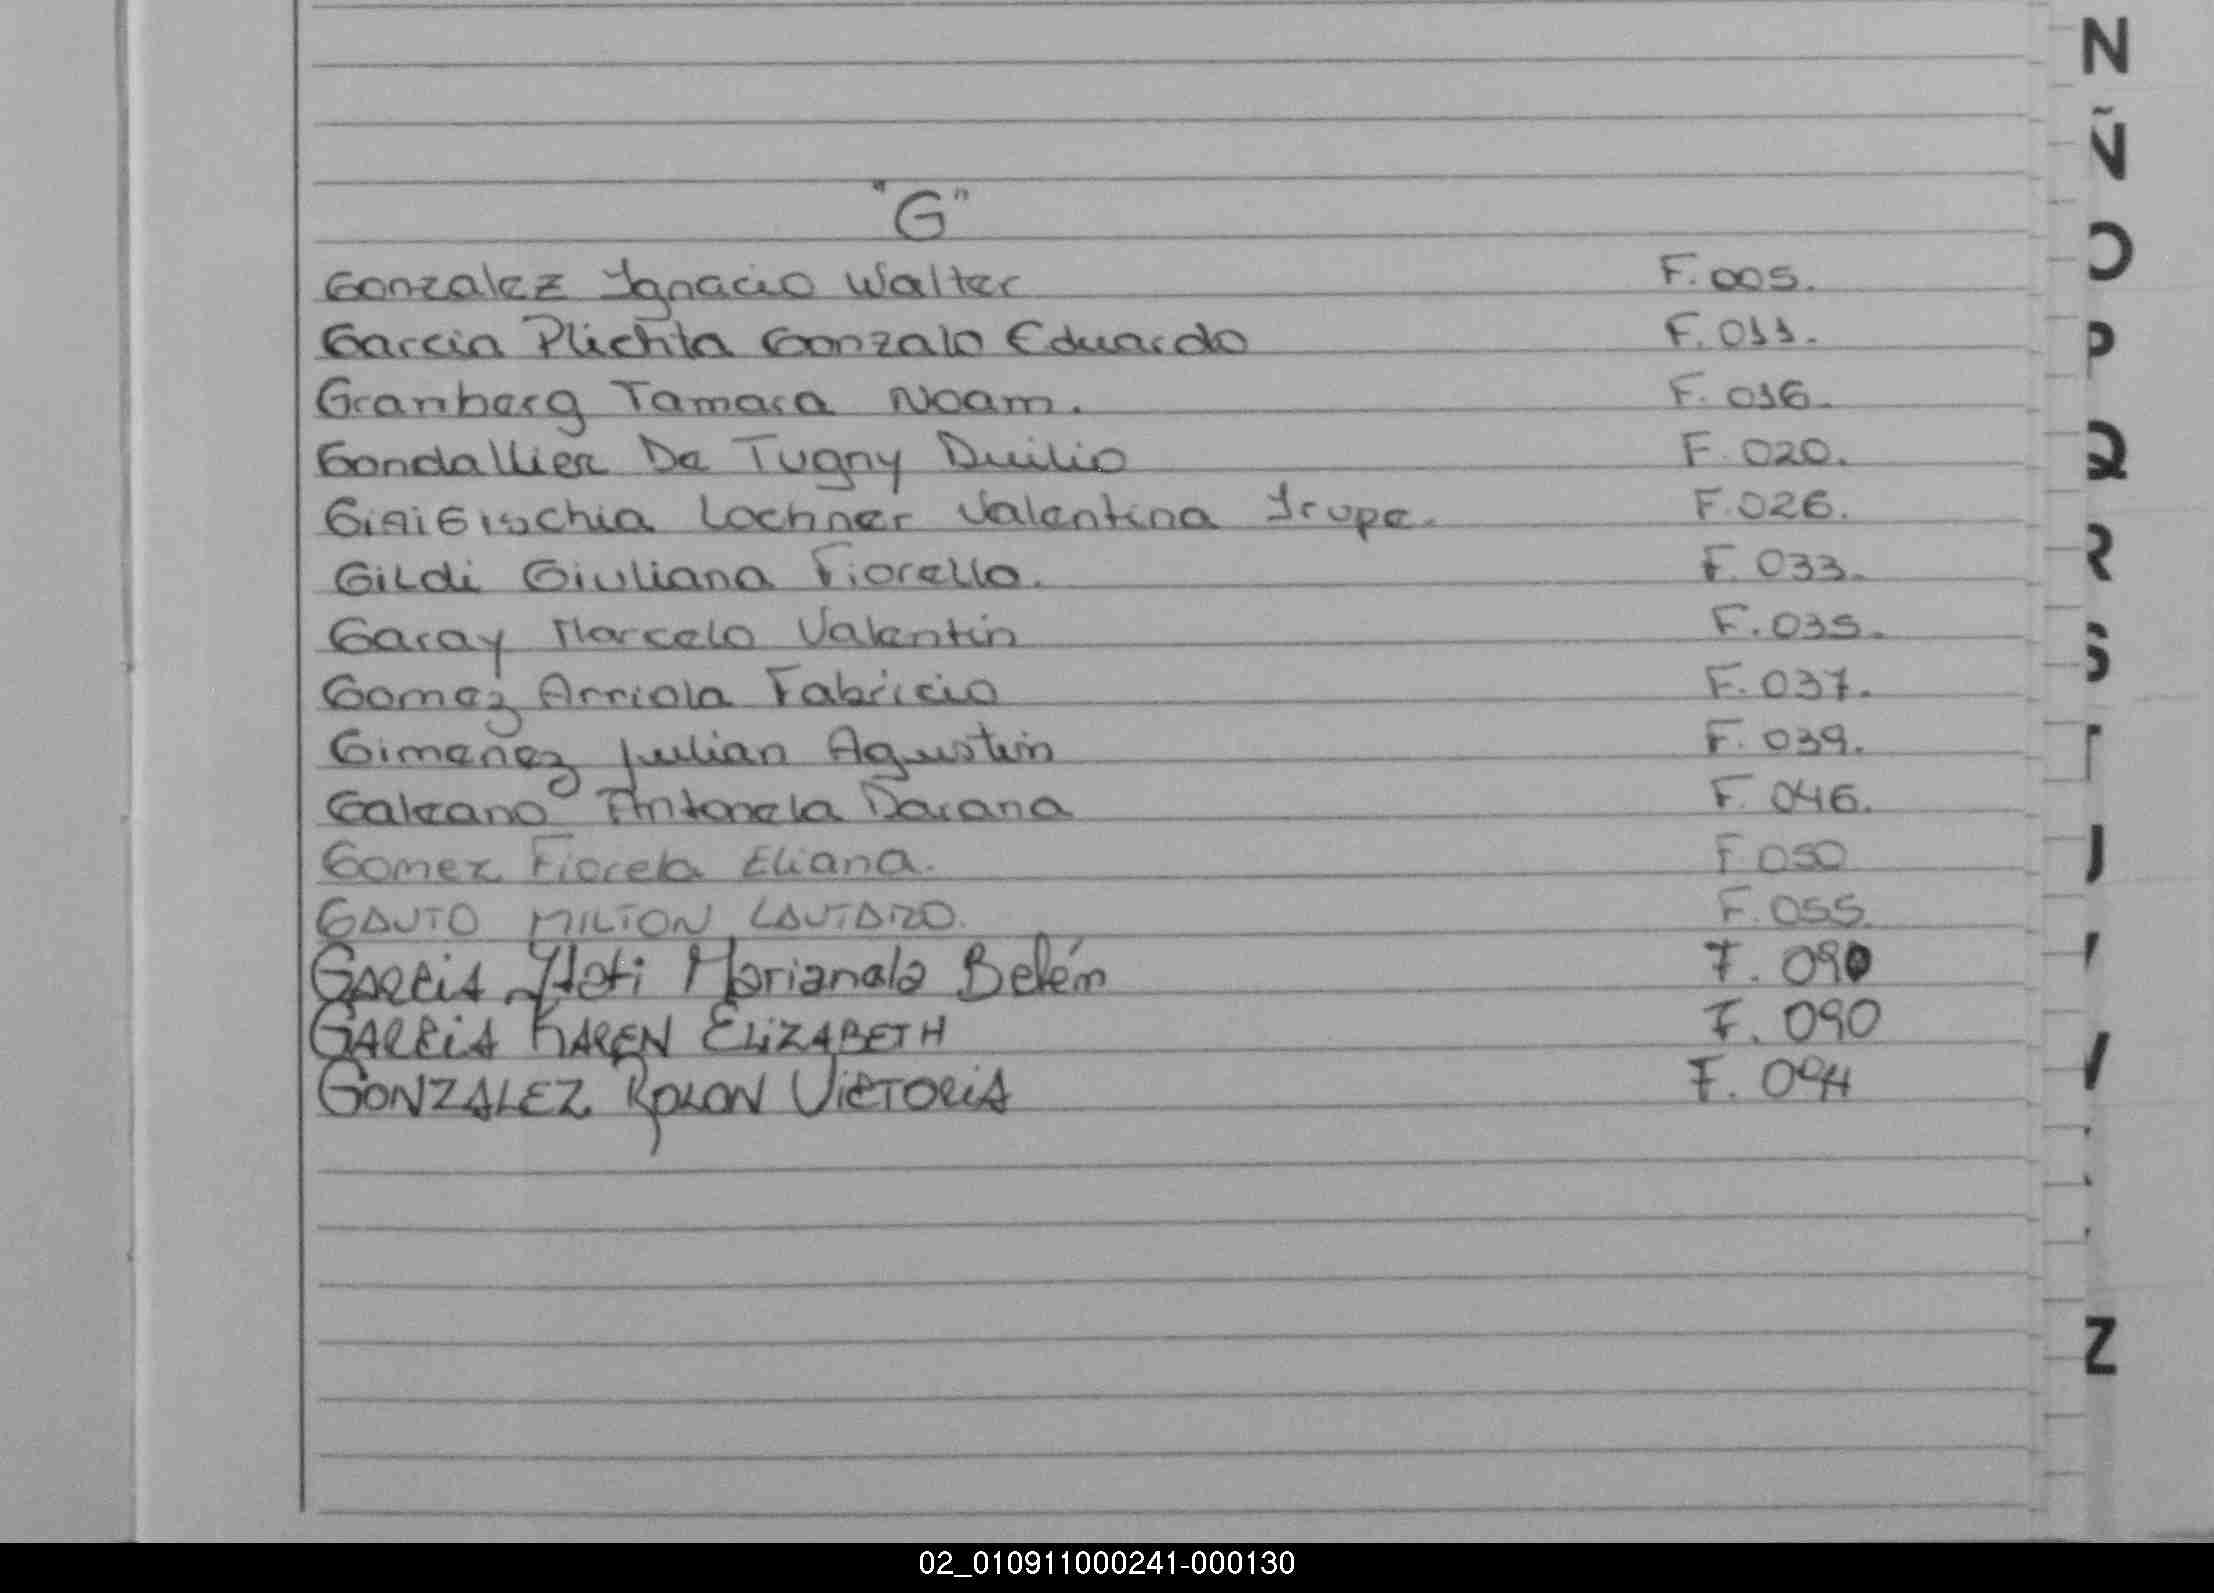 "G"
Gonzalez Ignacio Walter F. 005.
Garcia Plichta Gonzalo Eduardo F. 011.
Granberg Tamara Noam. F. 016.
Gondallier De Tugny Duilio F. 020.
Lochner Valentina Irupe. F. 026.
Gildi Giuliana Fiorella. F. 033.
Garay Marcelo Valentin F. 035.
Gomez Arriola Fabricio F. 037.
Gimenez Julian Agustin F. 039.
Galeano Antonela Daiana F. 046.
Gomez Fiorela Eliana. F 050
GAUTO MILTON LAUTARO. F. 055.
GARCIA Marianela Belém F. 090
GARCIA KAREN ELIZABETH F. 090
GONZALEZ ROLON VICTORIA F. 094
N
Ñ
O
P
Q
R
S
Z
02_010911000241-000130